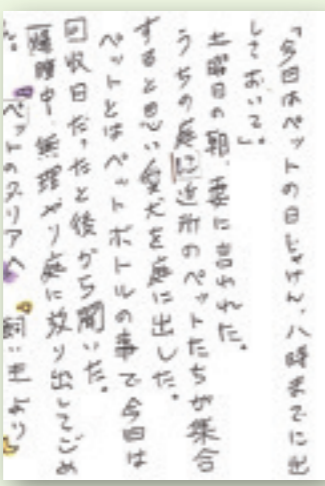 「今日はペットの日じゃけん、八時までに出
しておいて。」
土曜日の朝、妻に言われた。
うちの庭に近所のペットたちが集合
すると思い愛犬を庭に出した。
ペットとはペットボトルの事で今日は
回収日だったと後から聞いた。
爆睡中無理やり庭に放り出してごめ
ん。 ペットのマリアへ 飼い主より